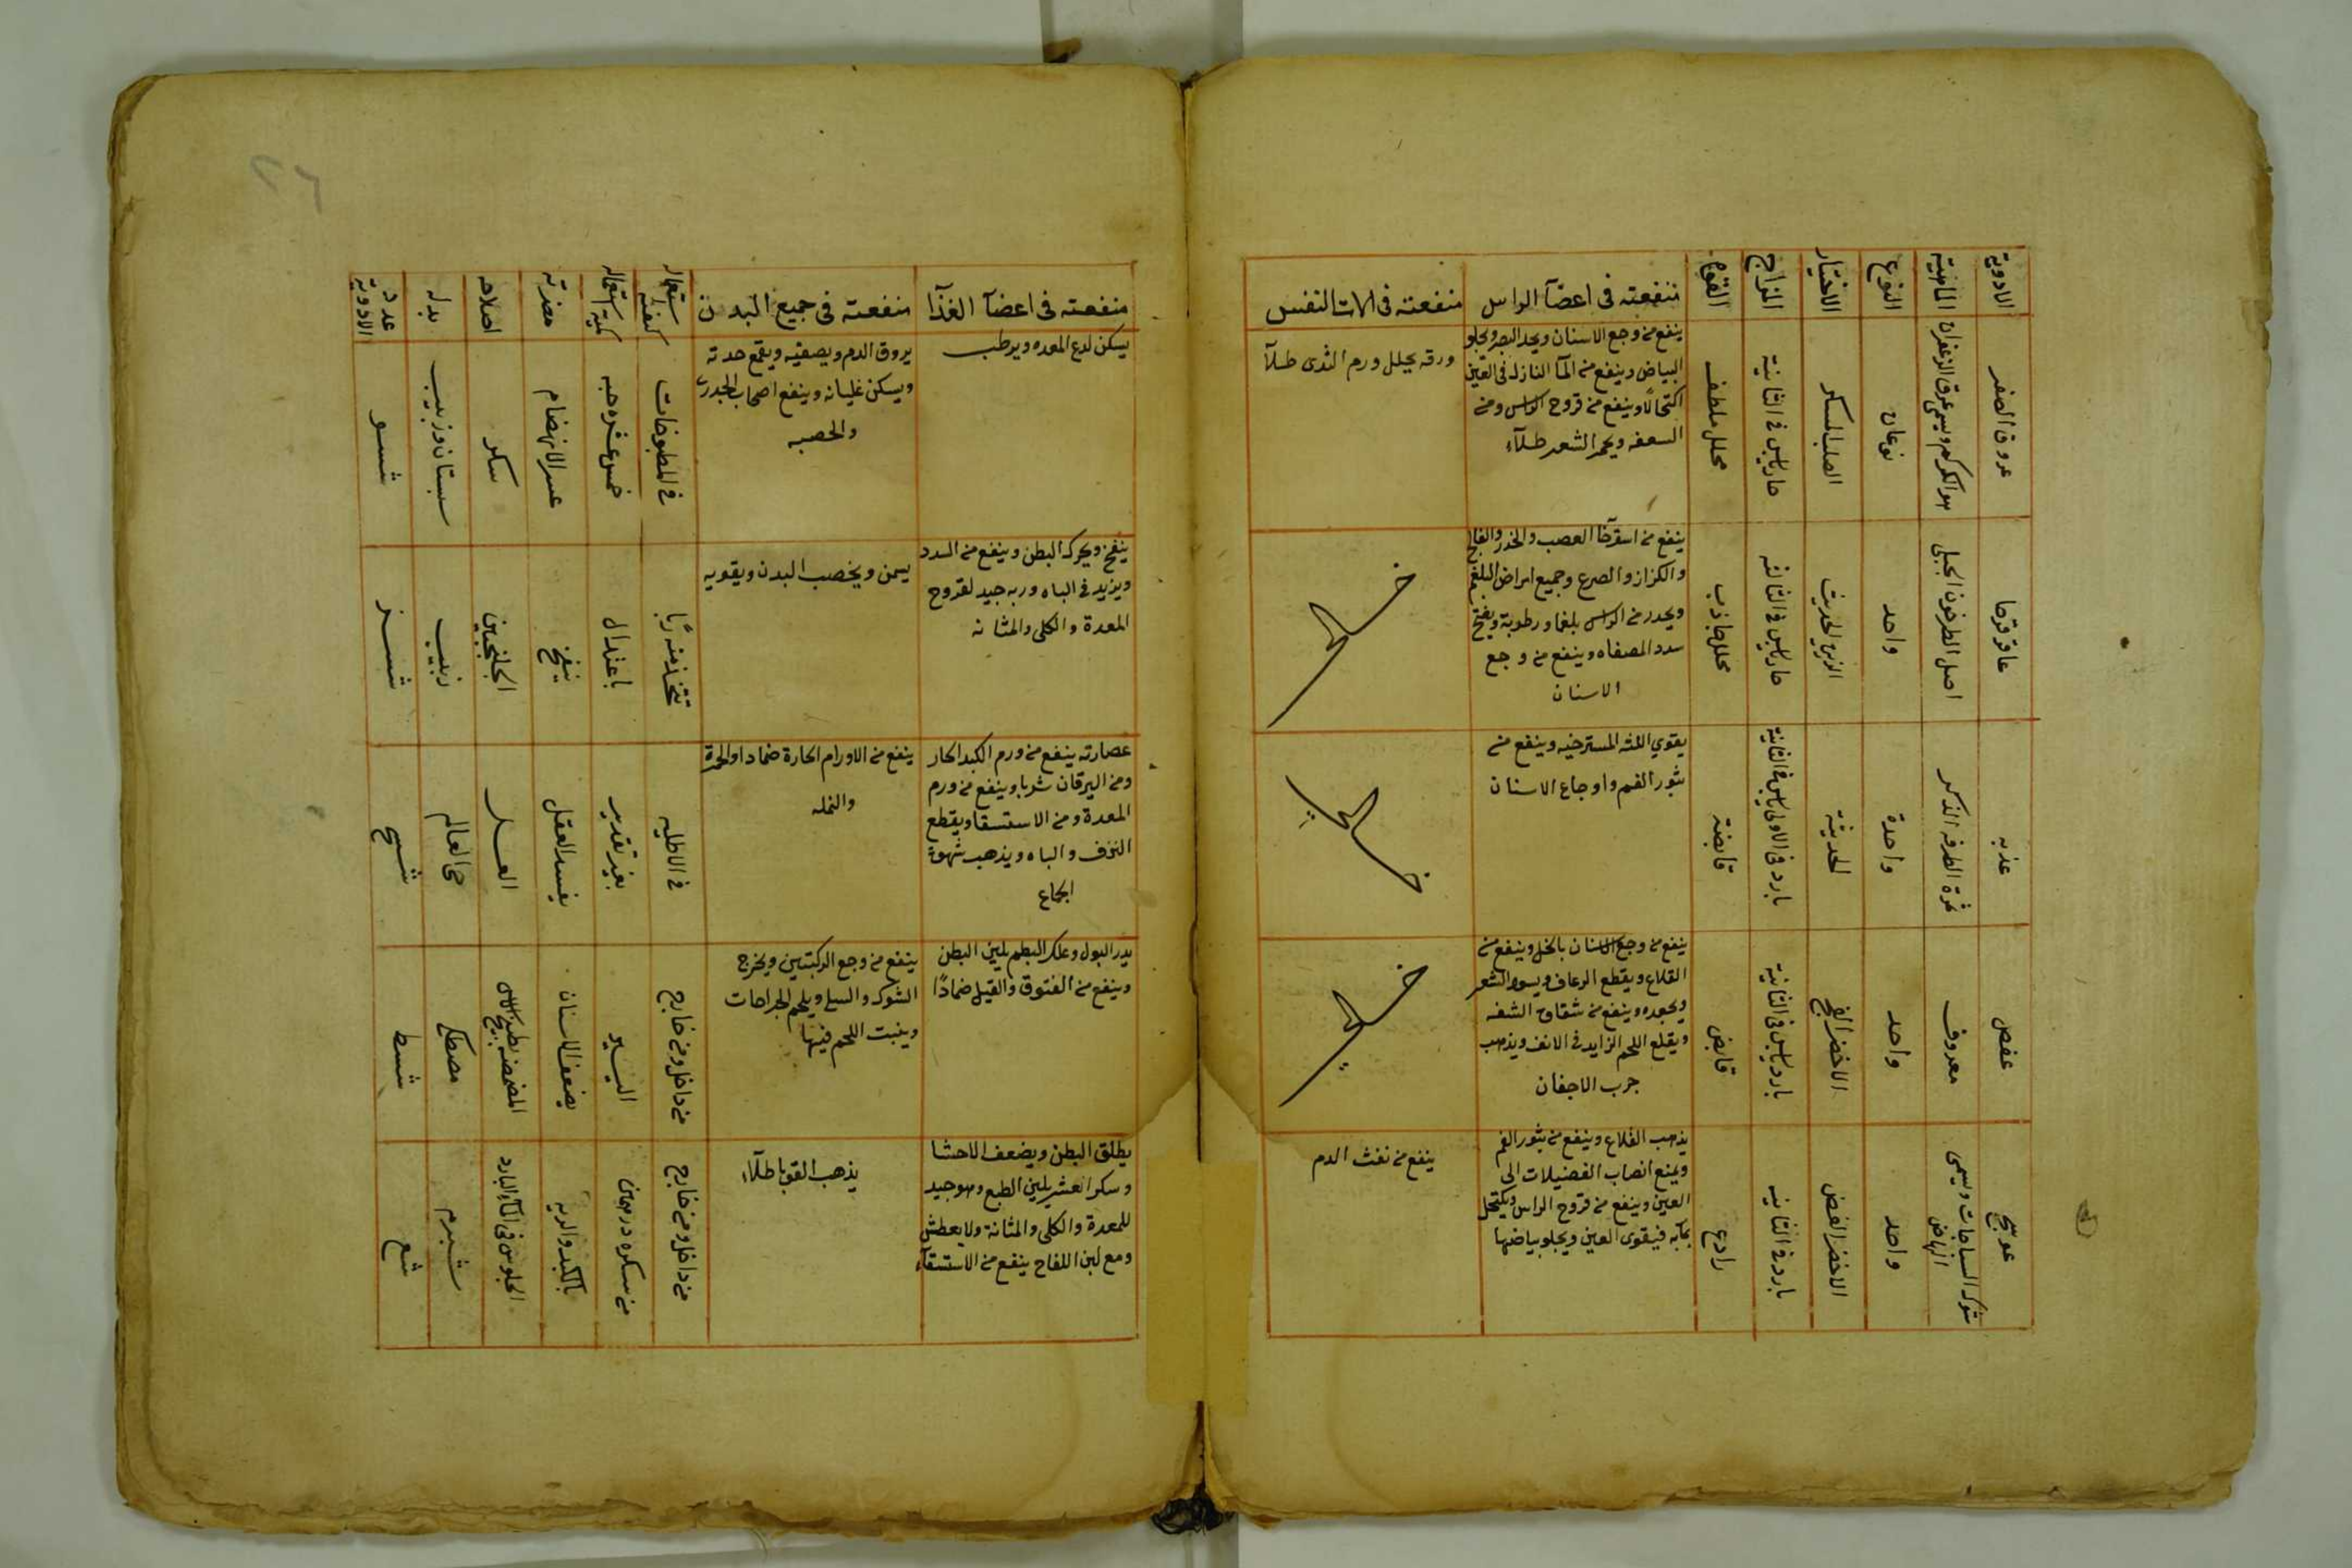 الادوية
الماهية
النوع
الاختيار
المزاج
القوة
منفعته في اعضآ الراس
منفعته في الات النفس
عروق الصفر
هو الكركم ويسمى عرق الزعفران
نوعان
حار يابس في الثانية
محلل ملطف
ينفع من وجع الاسنان ويحد البصر ويجلو
البياض وينفع من المآ النازل في العين
اكتحالاً وينفع من قروح الراس ومن
السعفه ويحمر الشعر طلآء
ورقه يحلل ورم الثدى طلآ
عاقرقرحا
اصل الطرخون الجبلى
واحد
حار يابس في الثالثه
محلل جاذب
ينفع من استرخآ العصب والخدر والفالج
والكزاز والصرع وجميع امراض البلغم
ويحدر من الراس بلغما ورطوبة ويفتح
سدد المصفاه وينفع من وجع
الاسنان
خـالي
عذبه
ثمرة الطرفه الذكر
واحدة
الحديثة
بارد في الاولى يابس في الثانية
قابضة
يقوي اللثه المسترخيه وينفع من
بثور الفم واوجاع الاسنان
خـالي
عفص
معروف
واحد
الاخضر الفج
بارد يابس في الثانية
قابض
ينفع من وجع الاسنان بالخل وينفع من
القلاع ويقطع الرعاف ويسود الشعر
ويجعده وينفع من شقاق الشفه
ويقلع اللحم الزايد في الانف ويذهب
جرب الاجفان
خـالي
عوسج
شوك السباخات ويسمى
واحد
الاخضر الغض
بارد في الثانيه
رادع
يذهب القلاع وينفع من بثور الفم
ويمنع انصاب الفضيلات الى
العين وينفع من قروح الراس ويكتحل
بمآيه فيقوى العين ويجلو بياضها
ينفع من نفث الدم
٢٦
منفعته في اعضآ الغذآ
منفعته في جميع البدن
كيفية استعماله
كمية استعماله
مضرته
اصلاحه
بدله
عدد الادوية
يسكن لدع المعده ويرطب
يروق الدم ويصفيه ويقمع حدته
ويسكن غليانه وينفع اصحاب الجدرى
والحصبه
في المطبوخات
خمس عشره حبه
عسر الانهضام
سكر
سبستان وزبيب
شسو
ينفخ ويحرك البطن وينفع من السدد
ويزيد في الباه وربه جيد لقروح
المعدة والكلى والمثانه
يسمن ويخصب البدن ويقويه
تتخذ منه ربًا
باعتدال
ينفخ
الجلنجبين
زبيب
شسز
عصارته ينفع من ورم الكبد الحار
ومن اليرقان شربا وينفع من ورم
المعدة ومن الاستسقا ويقطع
النزف والباه ويذهب شهوة
الجماع
ينفع من الاورام الحارة ضمادا والحمرة
والنمله
في الاطليه
بغير تقدير
يفسد العقل
العسل
حي العالم
شسح
يدر البول وعلك البطم يلين البطن
وينفع من الفتوق والقيل ضمادًا
ينفع من وجع الركبتين ويخرج
الشوك والسلي ويلحم الجراحات
وينبت اللحم فيها
من داخل ومن خارج
اليسير
يضعف الاسنان
مصطكى
شسط
يطلق البطن ويضعف الاحشا
وسكر العشر يلين الطبع وهو جيد
للمعدة والكلى والمثانة ولا يعطش
ومع لبن اللقاح ينفع من الاستسقآء
يذهب القوبا طلآء
من داخل ومن خارج
من سكره درهمين
بالكبد والريه
الجلوس في المآء البارد
شبرم
شع